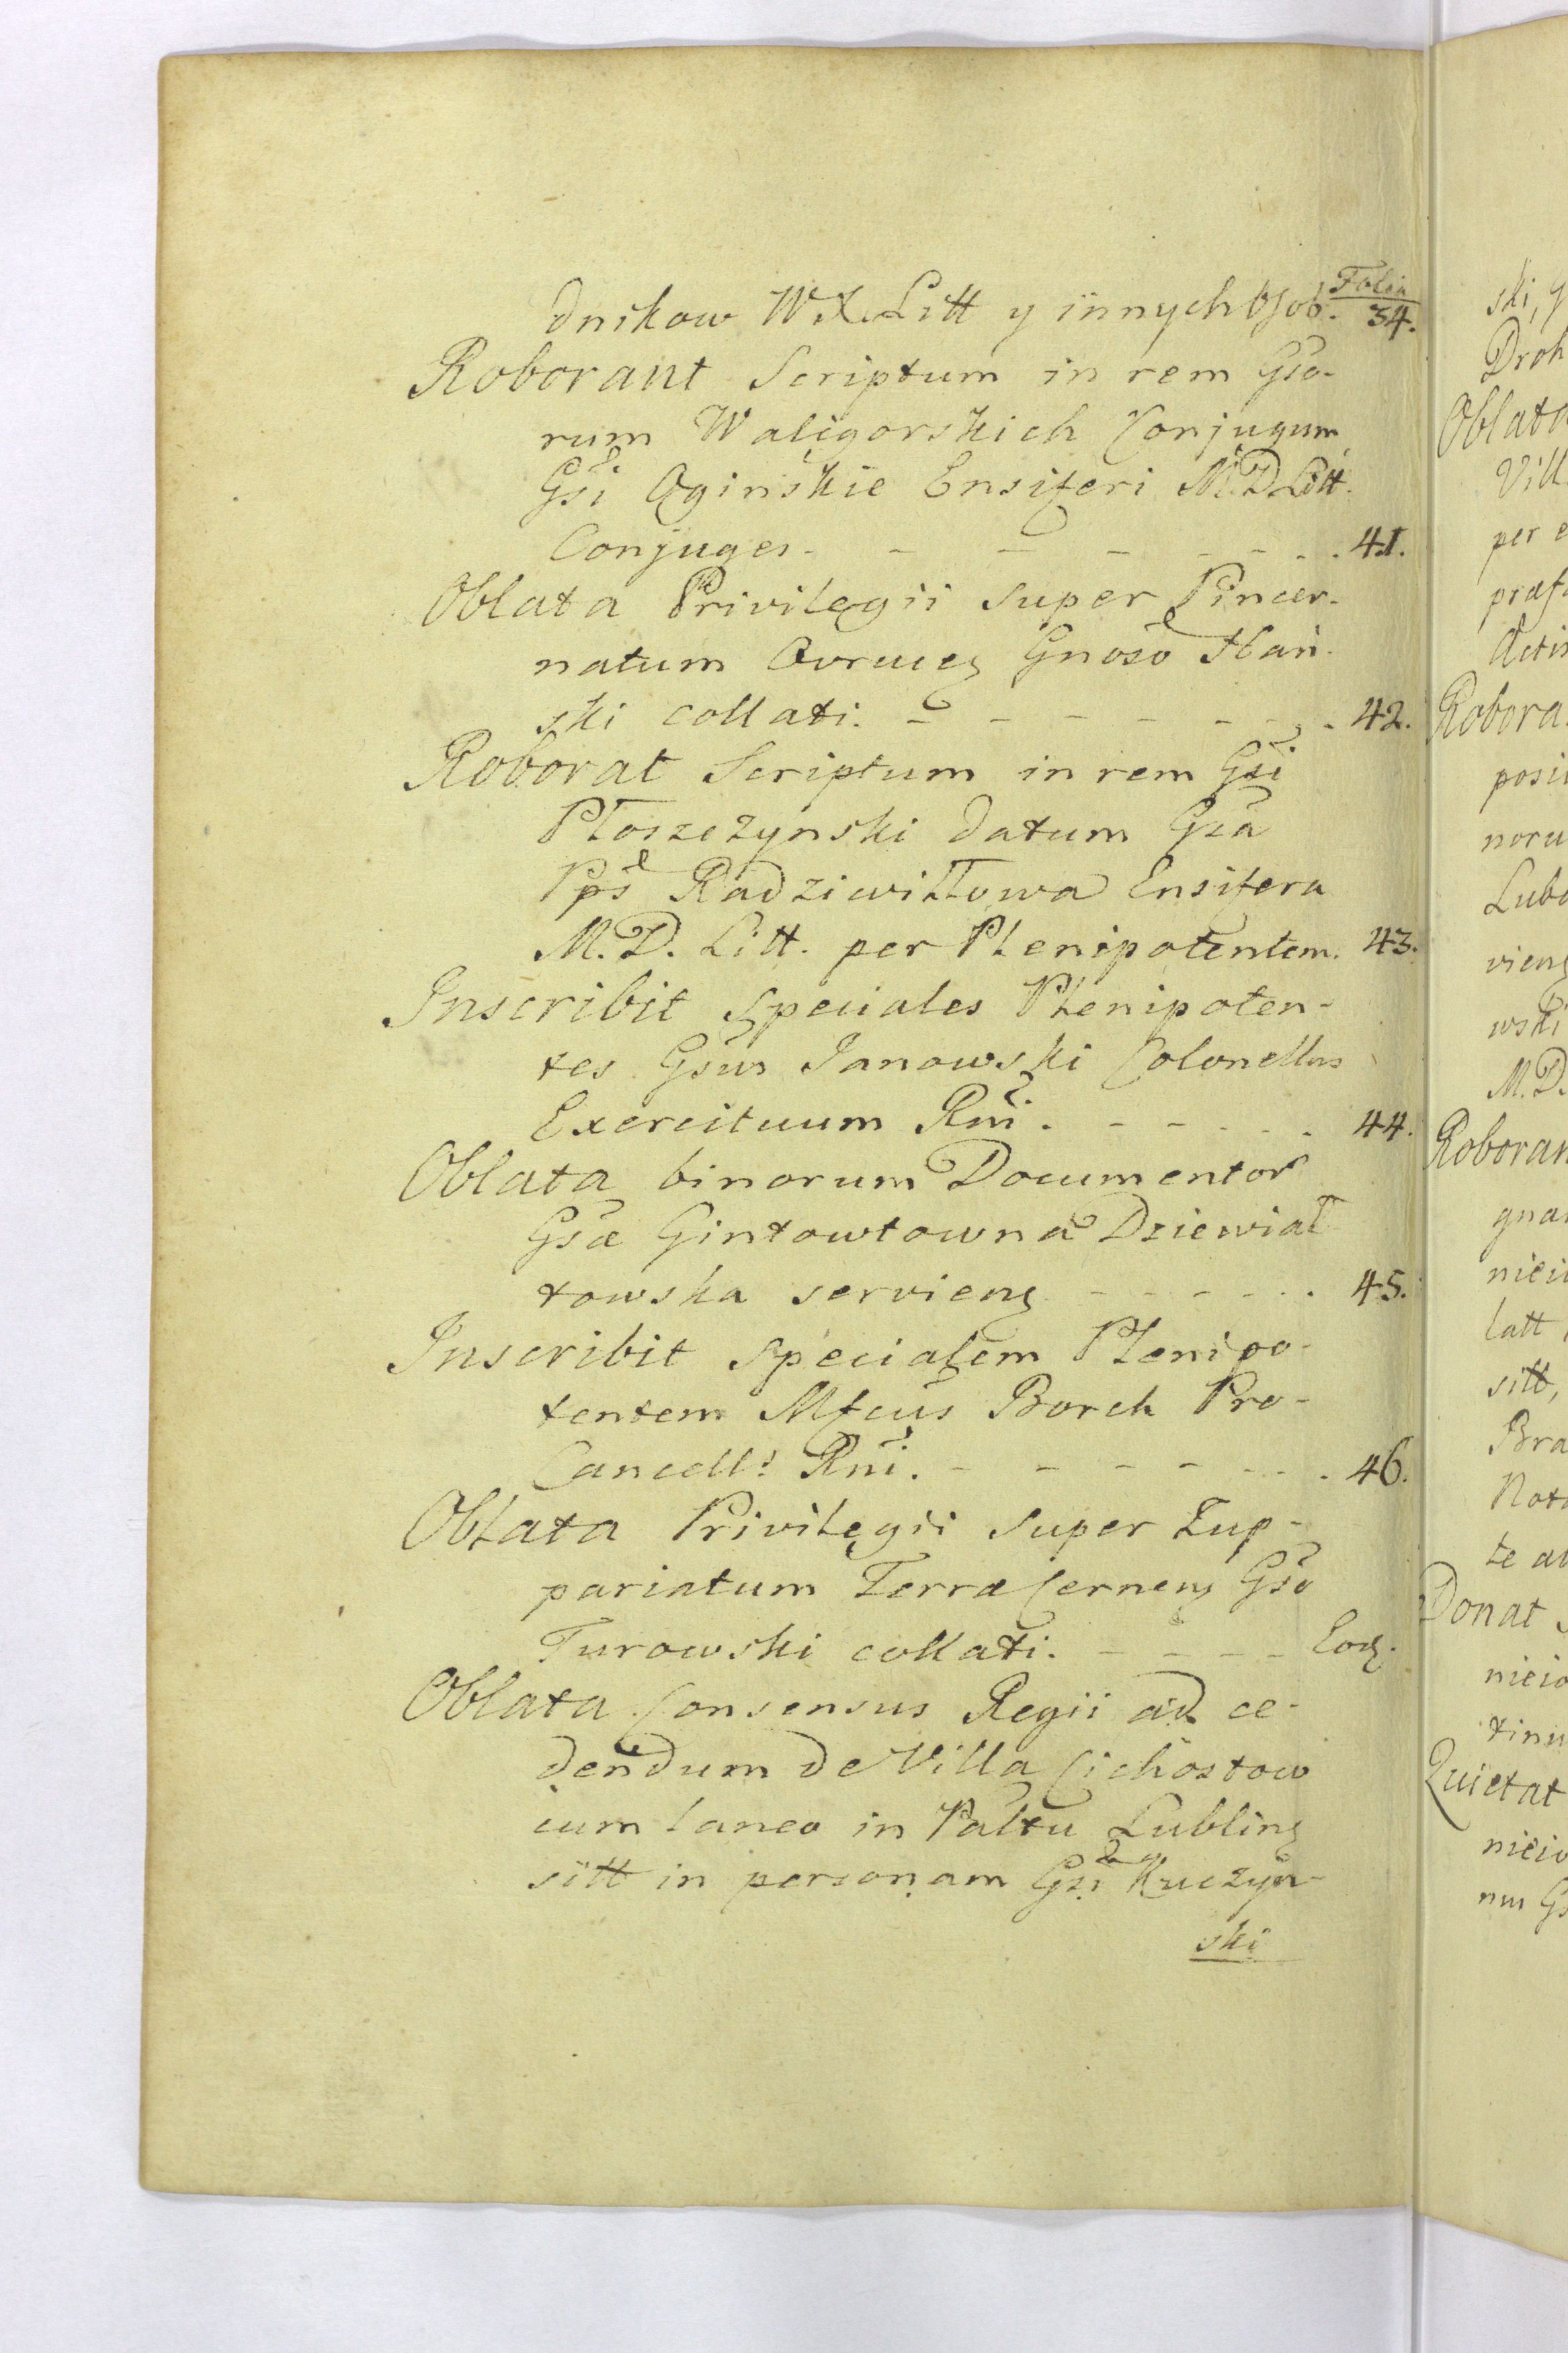 Folia
dnikow W.X. Litt y innych Osob. 34.
Roborant Scriptum in rem Gso-
rum Waligorskich Conjugum
Gsi Oginskie Ensiferi M.D. Litt.
Conjuges. - - - - - - . 41.
Oblata Privilegii super Pincer-
natum Ovruceg Gnoso Han-
ski collati. - - - - - - . 42.
Roborat Scriptum in rem Gsi
Płoszczynski datum Gsa
Pps Radziwiłłowa Ensifera
M.D. Litt. per Plenipotentem. 43.
Inscribit speciales Plenipoten-
tes Gsus Janowski Colonellus
Exercituum Rni. - - - - - . 44.
Oblata binorum Documentor
Gsæ Gintowtowna Dziewiał
towska servieng - - - - - . 45.
Inscribit specialem Plenipo-
tentem Mfcus Borch Pro-
Cancell: Rni. - - - - - - . 46.
Oblata Privilegii super Zup-
pariatum Terræ Cerneng Gso
Turowski collati. - - - - Eod.
Oblata Consensus Regii ad ce-
dendum de Villa Cichostow
cum laneo in Palttu Lubling
sitt in personam Gsi Kuczyn-
ski
ski, y
Droh
Oblata
Vill
per e
præf
Actin
Robora
posi
noru
Lubo
vieng
wski
M.D.
Roboran
gna
niei
latt
sitt,
Bra
Nota
te a
Donat
nieio
tinu
Quietat
nieio
nus Gs